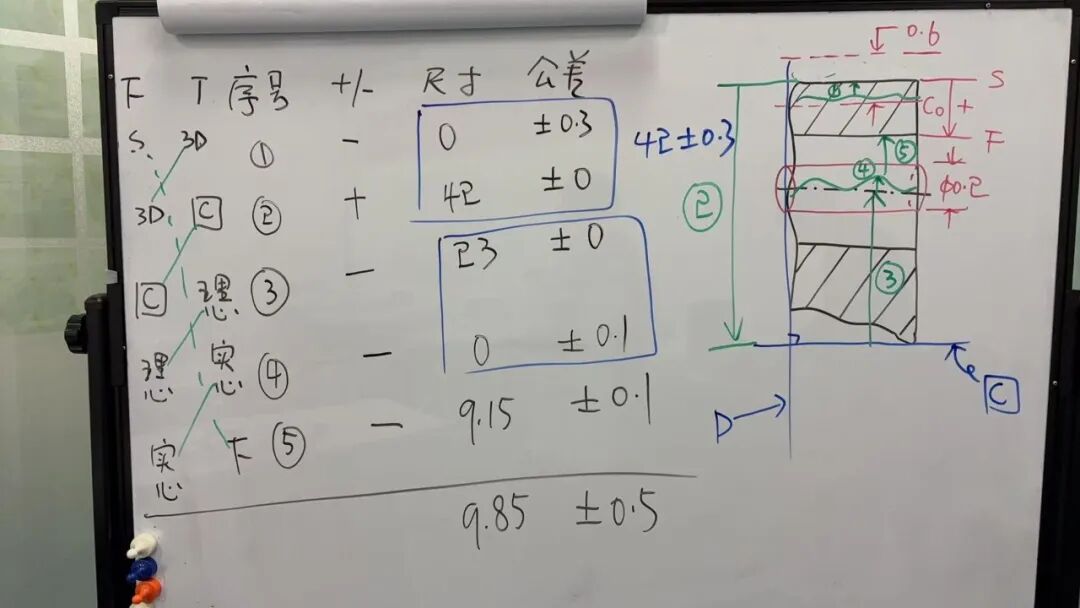 F T 序号 +/- 尺寸 公差
S 3D ① - 0 ±0.3
3D C ② + 42 ±0
C 理 ③ - 23 ±0
理心 实心 ④ - 0 ±0.1
实心 F ⑤ - 9.15 ±0.1
9.85 ±0.5
42±0.3
②
0.6
S
C0 +
F
⑤
④
φ0.2
③
D
C